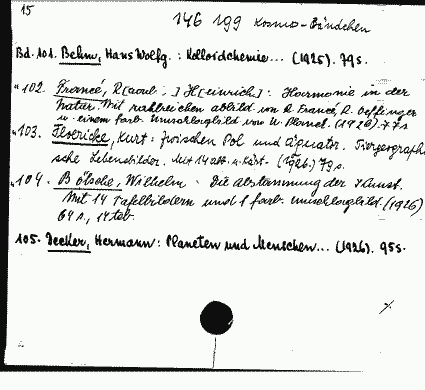 15
146 199 Kosmo-Bändchen
Bd. 101. Behm, Hans Wolfg. : Kolloidchemie... (1925). 79 s.
" 102. Francé, R[aoul .] H[einrich]: Harmonie in der
Natur. Mit zahlreichen abbild. von R. Francé, R. Oeffinger
u. einem farb. Umschlagbild von W. Planck. (1926). 77 s
" 103. Floericke, Kurt: Zwischen Pol und Äquator. Tiergeographi-
sche Lebensbilder. Mit 14 abb. u. Kärt. (1926.) 79 s.
" 104. Bölsche, Wilhelm: Die Abstammung der Kunst.
Mit 14 Tafelbildern und 1 farb. Umschlagbild. (1926)
64 s., 14 taf.
105. Decker, Hermann: Planeten und Menschen... (1926). 95 s.